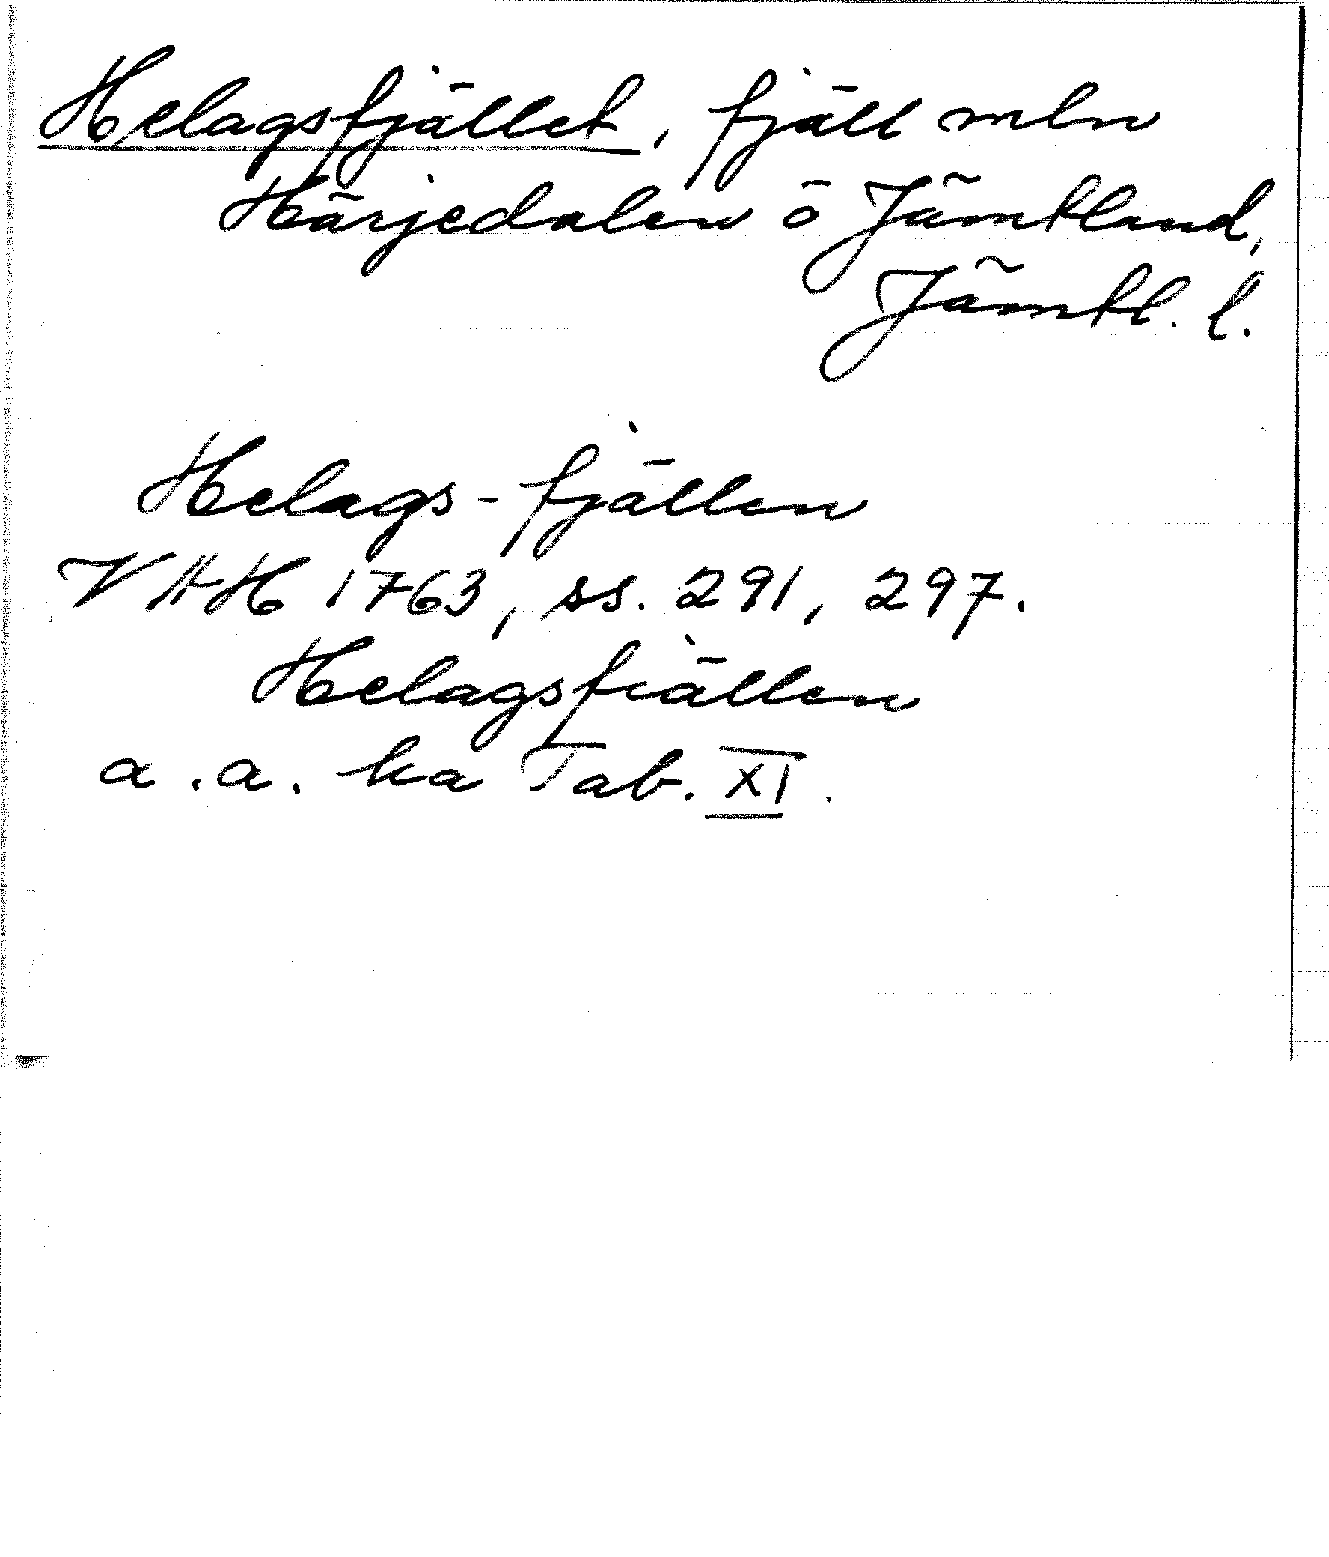 Helagsfjället, fjäll mln
Härjedalen o Jämtland,
Jämtl. l.
Helags-fjällen
VAH 1763, ss. 291, 297.
Helagsfiällen
a.a. ka Tab. XI.